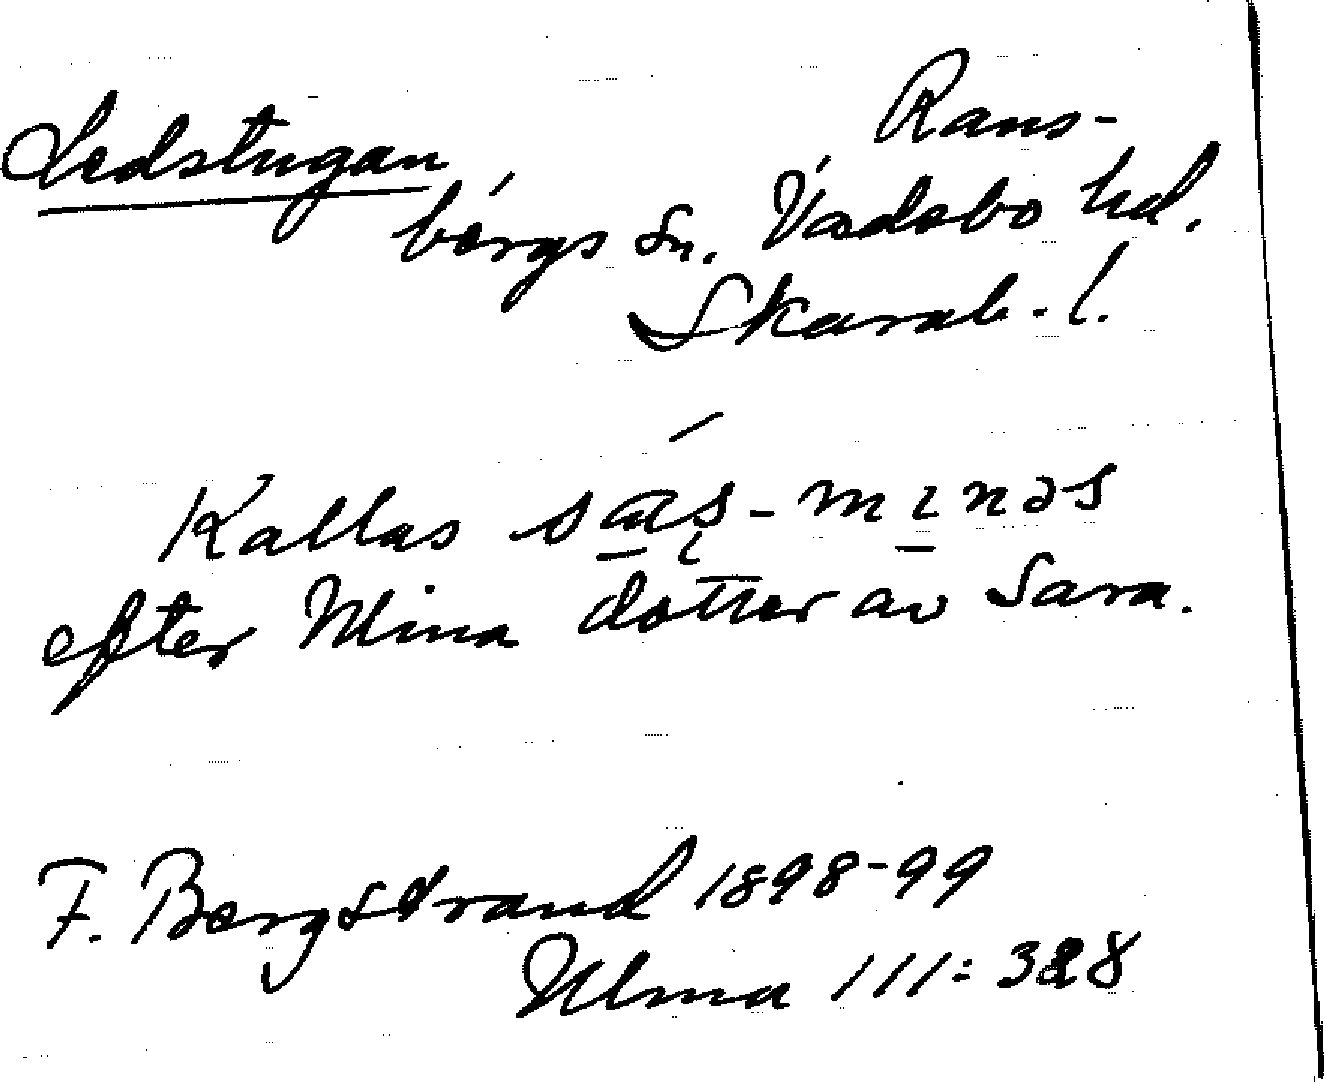 Ledstugan
Rans-
bergs sn. Vadsbo hd.
Skarab. l.
Kallas sas-minas
efter Mina dotter av Sara.
F. Bergstrand 1898-99
Ulma 111:328